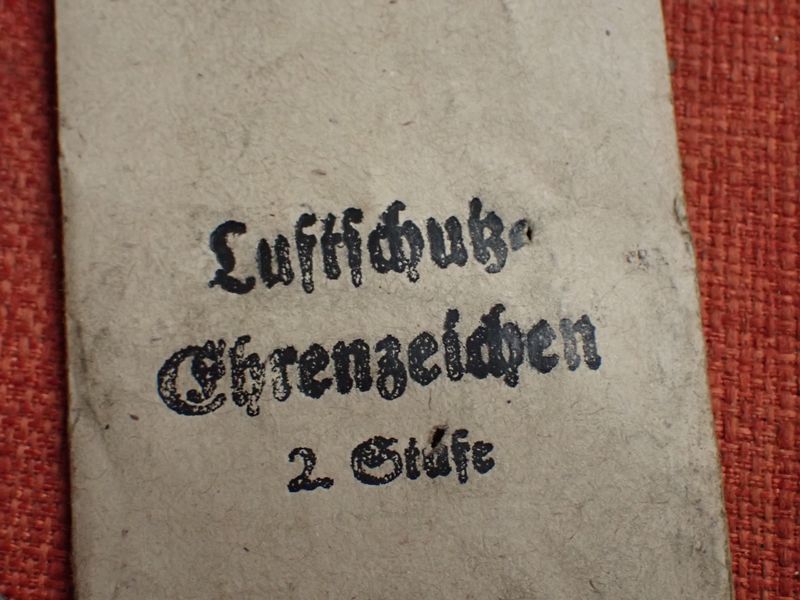 Luftschutz-
Ehrenzeichen
2. Stufe